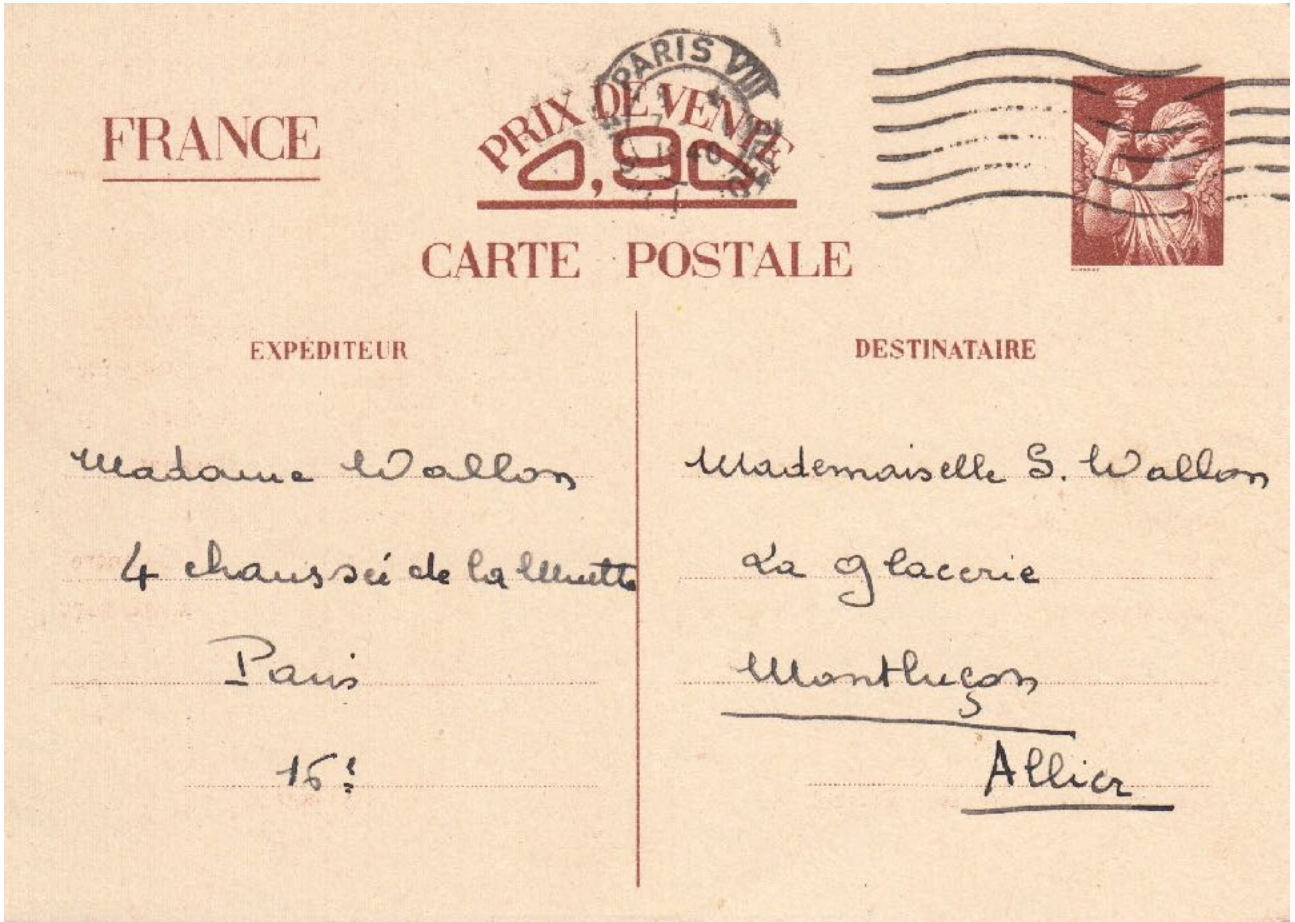 FRANCE
PRIX DE VENTE
0,90
PARIS VIII
40
CARTE POSTALE
EXPÉDITEUR
Madame Wallon
4 chaussée de la Muette
Paris
16e
DESTINATAIRE
Mademoiselle S. Wallon
La Glacerie
Montluçon
Allier